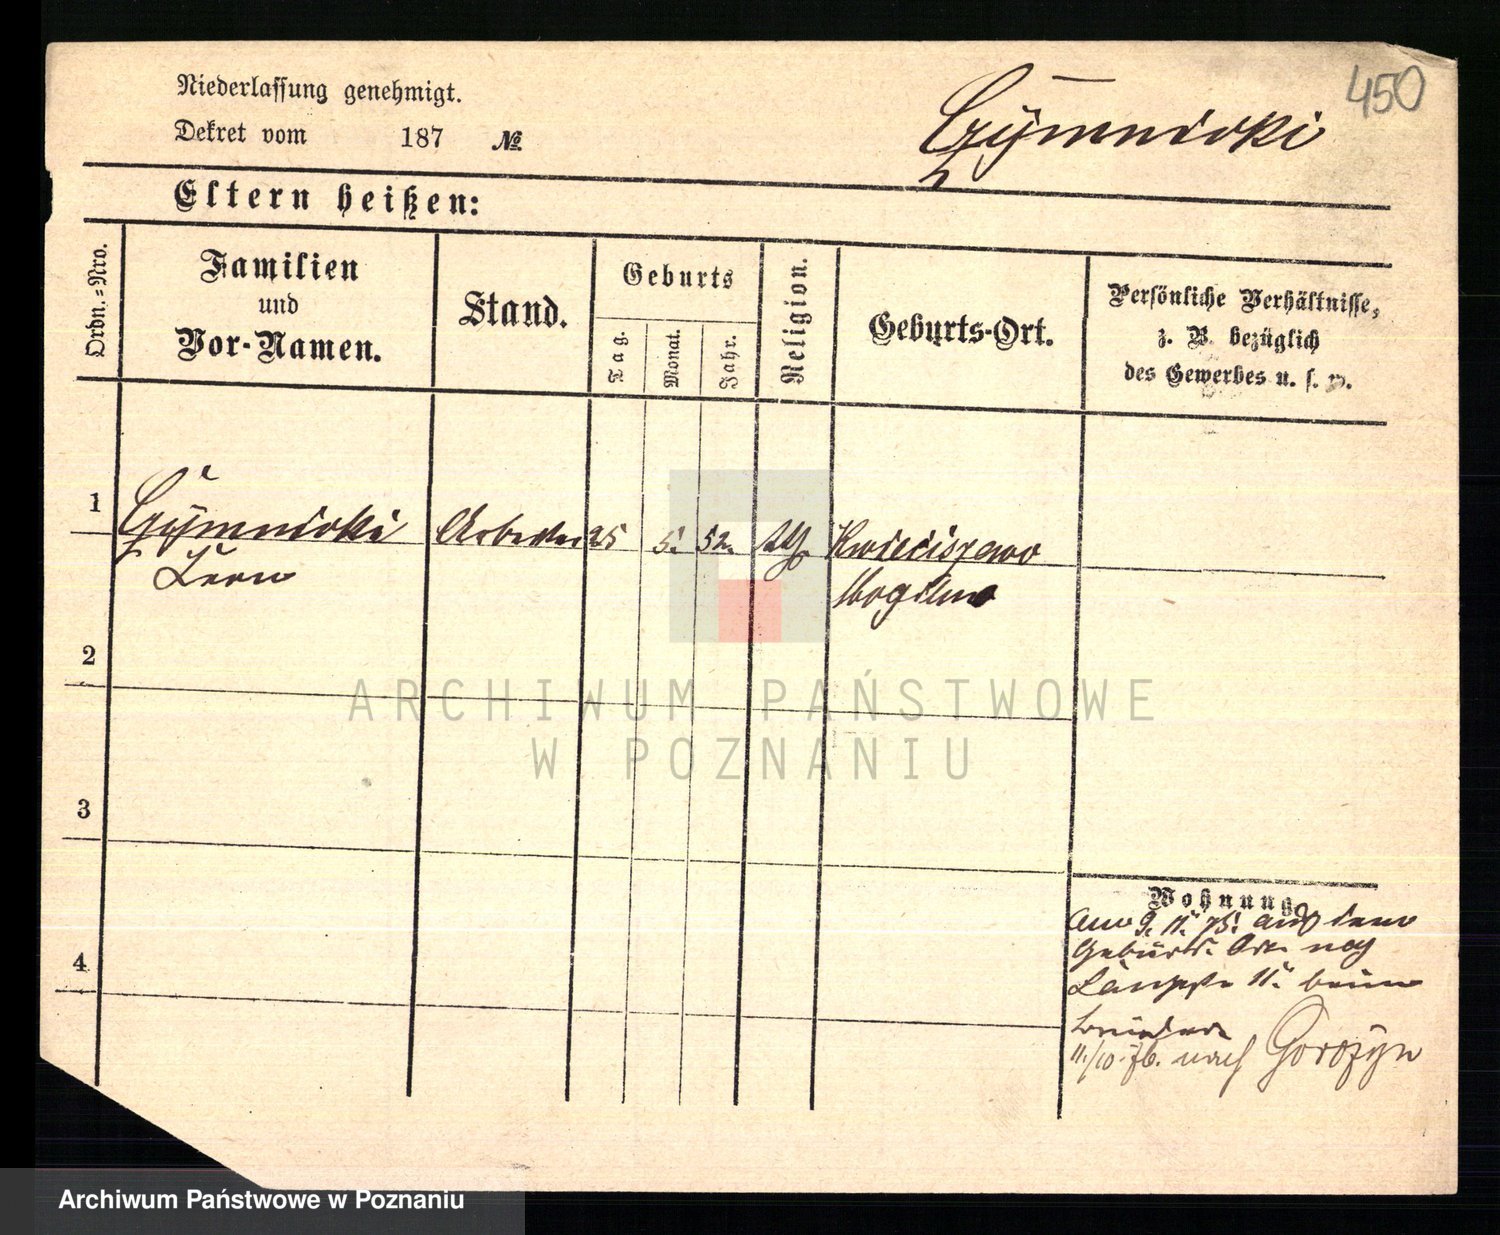 450
Niederlassung genehmigt.
Dekret vom 187 №
Gÿmnicki
Eltern heißen:
Ordn.=Nro.
Familien
und
Vor-Namen.
Stand.
Geburts
Tag.
Monat.
Jahr.
Religion.
Geburts-Ort.
Persönliche Verhältnisse,
z. B. bezüglich
des Gewerbes u. s. w.
1
Gÿmnicki Arbeiter 25 5. 52. Kwieciszewo
Leon Mogilno
2
ARCHIWUM PAŃSTWOWE
W POZNANIU
3
Wohnung
am 9. 11. 75. aus dem
Geburts-Ort nach
11. beim
Bruder
4
11./10. 76. nach Gorozyn
Archiwum Państwowe w Poznaniu